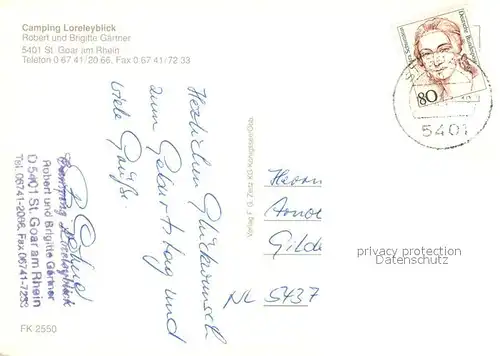 Camping Loreleyblick
Robert und Brigitte Gärtner
5401 St. Goar am Rhein
Telefon 0 67 41/20 66, Fax 0 67 41/72 33
Herzlichen Glückwunsch
zum Geburtstag und
viele Grüße.
Camping Loreleyblick
Robert und Brigitte Gärtner
D 5401 St. Goar am Rhein
Tel. 06741-2066, Fax 06741-7233
FK 2550
Deutsche Bundespost
80
5401
Herrn
Gilde
NL 5437
privacy protection
AKPOOL.DE